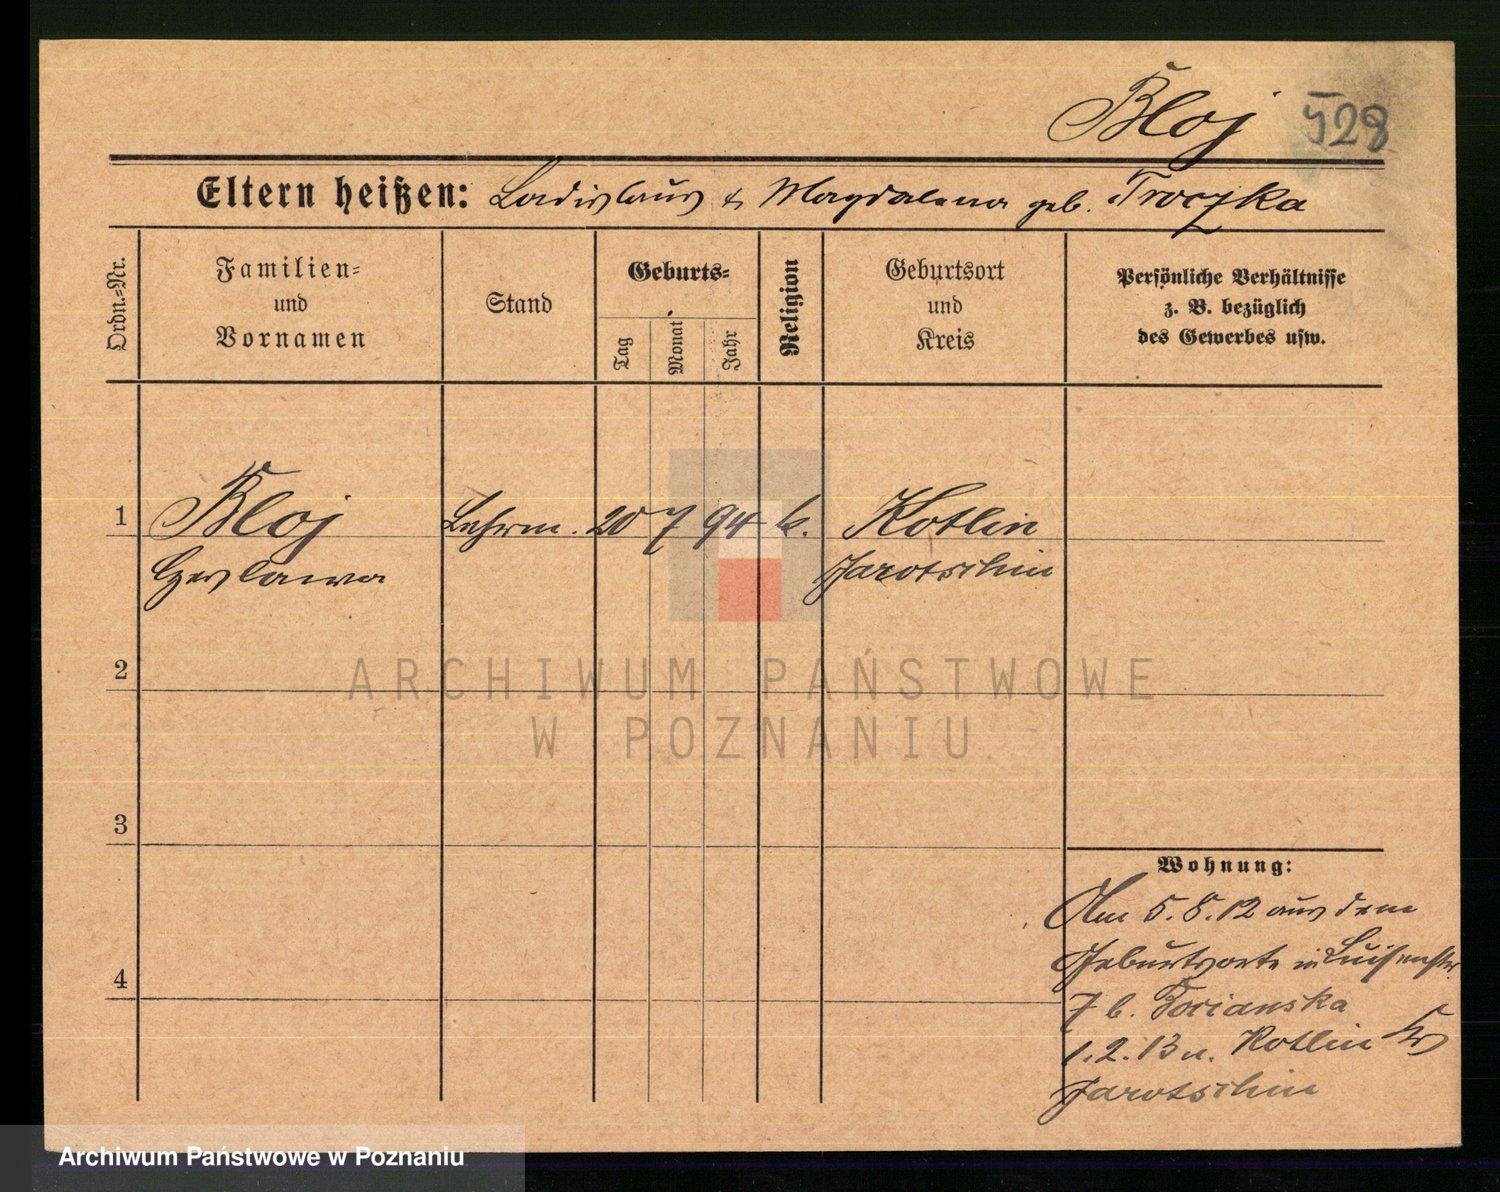 Bloj 528
Eltern heißen: Ladislaus & Magdalena geb. Troczka
Ordn.=Nr.
Familien=
und
Vornamen
Stand
Geburts=
Tag
Monat
Jahr
Religion
Geburtsort
und
Kreis
Persönliche Verhältnisse
z. B. bezüglich
des Gewerbes usw.
1 Bloj Lehrm. 20 7 94 k. Kotlin
Jarotschin
2
3
4
Wohnung:
Am 5. 8. 12 aus dem
Geburtsorte in Luisenstr.
7 b.
1. 2. 13 n. Kotlin Kr
Jarotschin
ARCHIWUM PAŃSTWOWE
W POZNANIU
Archiwum Państwowe w Poznaniu